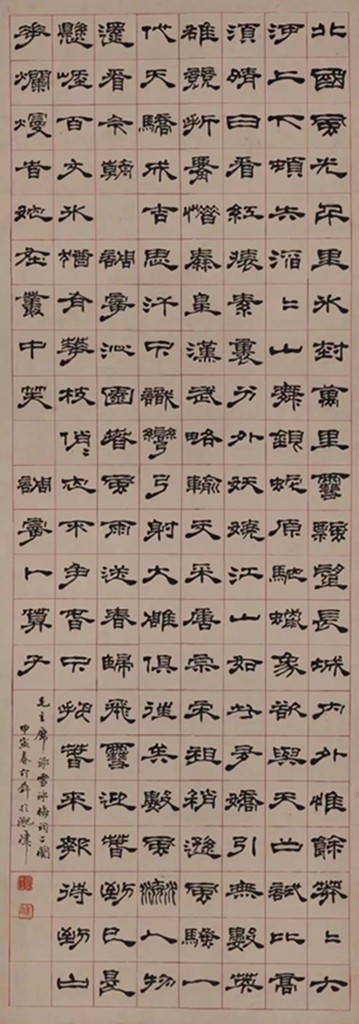 北國風光千里冰封萬里雪飄望長城內外惟餘莽〻大
河上下頓失滔〻山舞銀蛇原馳蠟象欲與天公試比高
須晴日看紅裝素裹分外妖嬈江山如此多嬌引無數英
雄競折腰惜秦皇漢武略輸文采唐宗宋祖稍遜風騷一
代天驕成吉思汗只識彎弓射大雕俱往矣數風流人物
還看今朝 調寄沁園春風雨送春歸飛雪迎春到已是
懸崖百丈冰猶有花枝俏〻也不爭春只把春來報待到山
花爛熳旹她在叢中笑 調寄卜算子
毛主席詠雪詠梅詞二闋
甲寅春